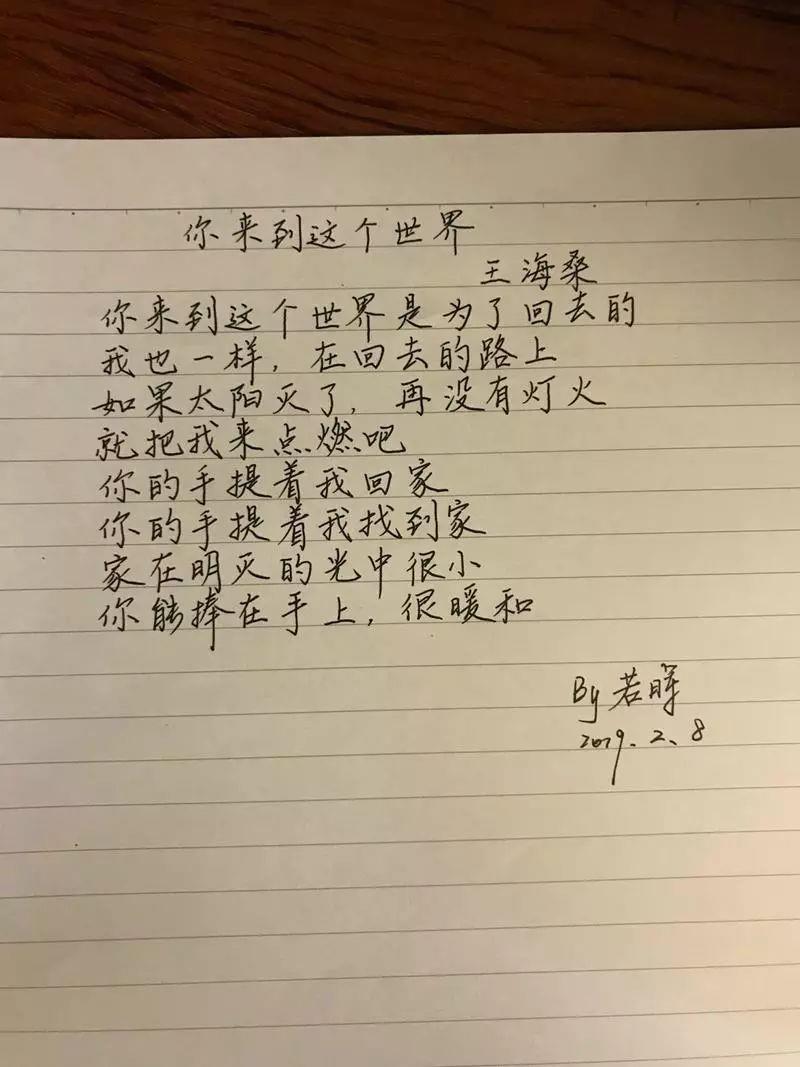 你来到这个世界
王海桑
你来到这个世界是为了回去的
我也一样，在回去的路上
如果太阳灭了，再没有灯火
就把我来点燃吧
你的手提着我回家
你的手提着我找到家
家在明灭的光中很小
你能捧在手上，很暖和
By 若晖
2019.2.8